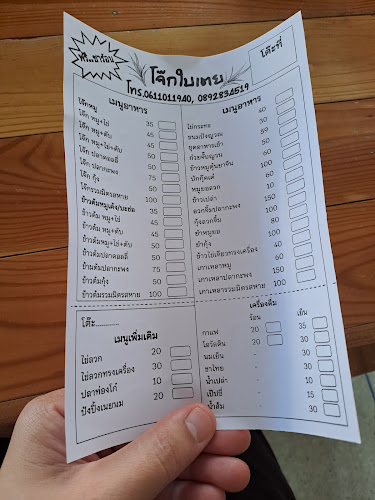 โจ๊กใบเตย
โต๊ะที่
โทร.0611011940, 0892834519
เมนูอาหาร
โจ๊กหมู 35
โจ๊ก หมู+ไข่ 45
โจ๊ก หมู+ตับ 45
โจ๊ก หมู+ไข่+ตับ 50
โจ๊ก ปลาดอลลี่ 50
โจ๊ก ปลากะพง 75
โจ๊ก กุ้ง 50
โจ๊กรวมมิตรสหาย 100
ข้าวต้มหมูเด้ง/บะช่อ 35
ข้าวต้ม หมู+ไข่ 45
ข้าวต้ม หมู+ตับ 45
ข้าวต้มหมู+ไข่+ตับ 50
ข้าวต้มปลาดอลลี่ 50
ข้าวต้มปลากะพง 75
ข้าวต้มกุ้ง 50
ข้าวต้มรวมมิตรสหาย 100
เมนูอาหาร
ไข่กระทะ 40
ขนมปังญวณ 50
ชุดอาหารเช้า 69
ก๋วยจั๊บญวน 50
ข้าวหมูตุ๋นยาจีน 60
บักกุ๊ดเต๋ 100
หมูยอลวก
ข้าวเปล่า 10
ลวกจิ้มปลากะพง 150
กุ้งลวกจิ้ม 80
ยำหมูยอ 100
ยำกุ้ง 100
ข้าวไข่เจียวทรงเครื่อง 40
เกาเหลาหมู 60
เกาเหลาปลากะพง 150
เกาเหลารวมมิตรสหาย 100
โต๊ะ............
เมนูเพิ่มเติม
ไข่ลวก 20
ไข่ลวกทรงเครื่อง 30
ปลาท่องโก๋ 10
ปังปิ้งเนยนม 20
เครื่องดื่ม
ร้อน เย็น
กาแฟ 20 35
โอวัลติน 20 30
นมเย็น - 30
ชาไทย - 30
น้ำเปล่า - 10
เป๊ปซี่ - 15
น้ำส้ม - 30